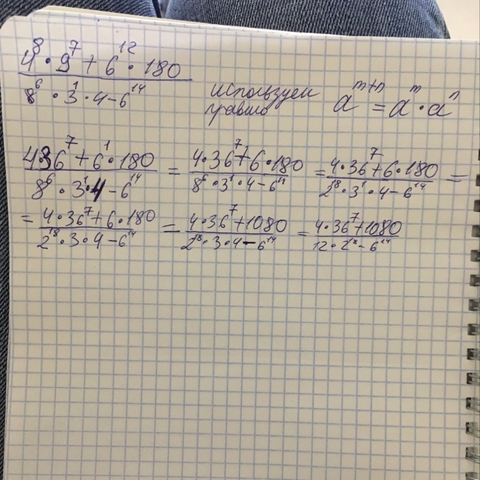 (4⁸·9⁷+6¹²·180)/(8⁶·3¹·4-6¹⁴) используем правило a^(m+n)=a^m·a^n
(4·36⁷+6¹·180)/(8⁶·3¹·4-6¹⁴) = (4·36⁷+6·180)/(8⁶·3¹·4-6¹⁴) = (4·36⁷+6·180)/(2¹⁸·3¹·4-6¹⁴) =
= (4·36⁷+6·180)/(2¹⁸·3·4-6¹⁴) = (4·36⁷+1080)/(2¹⁸·3·4-6¹⁴) = (4·36⁷+1080)/(12·2¹⁸-6¹⁴)